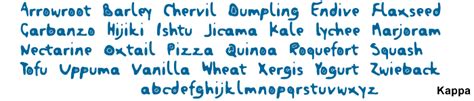 Arrowroot Barley Chervil Dumpling Endive Flaxseed
Garbanzo Hijiki Ishtu Jicama Kale Lychee Marjoram
Nectarine Oxtail Pizza Quinoa Roquefort Squash
Tofu Uppuma Vanilla Wheat Xergis Yogurt Zwieback
abcdefghijklmnopqrstuvwxyz
Kappa